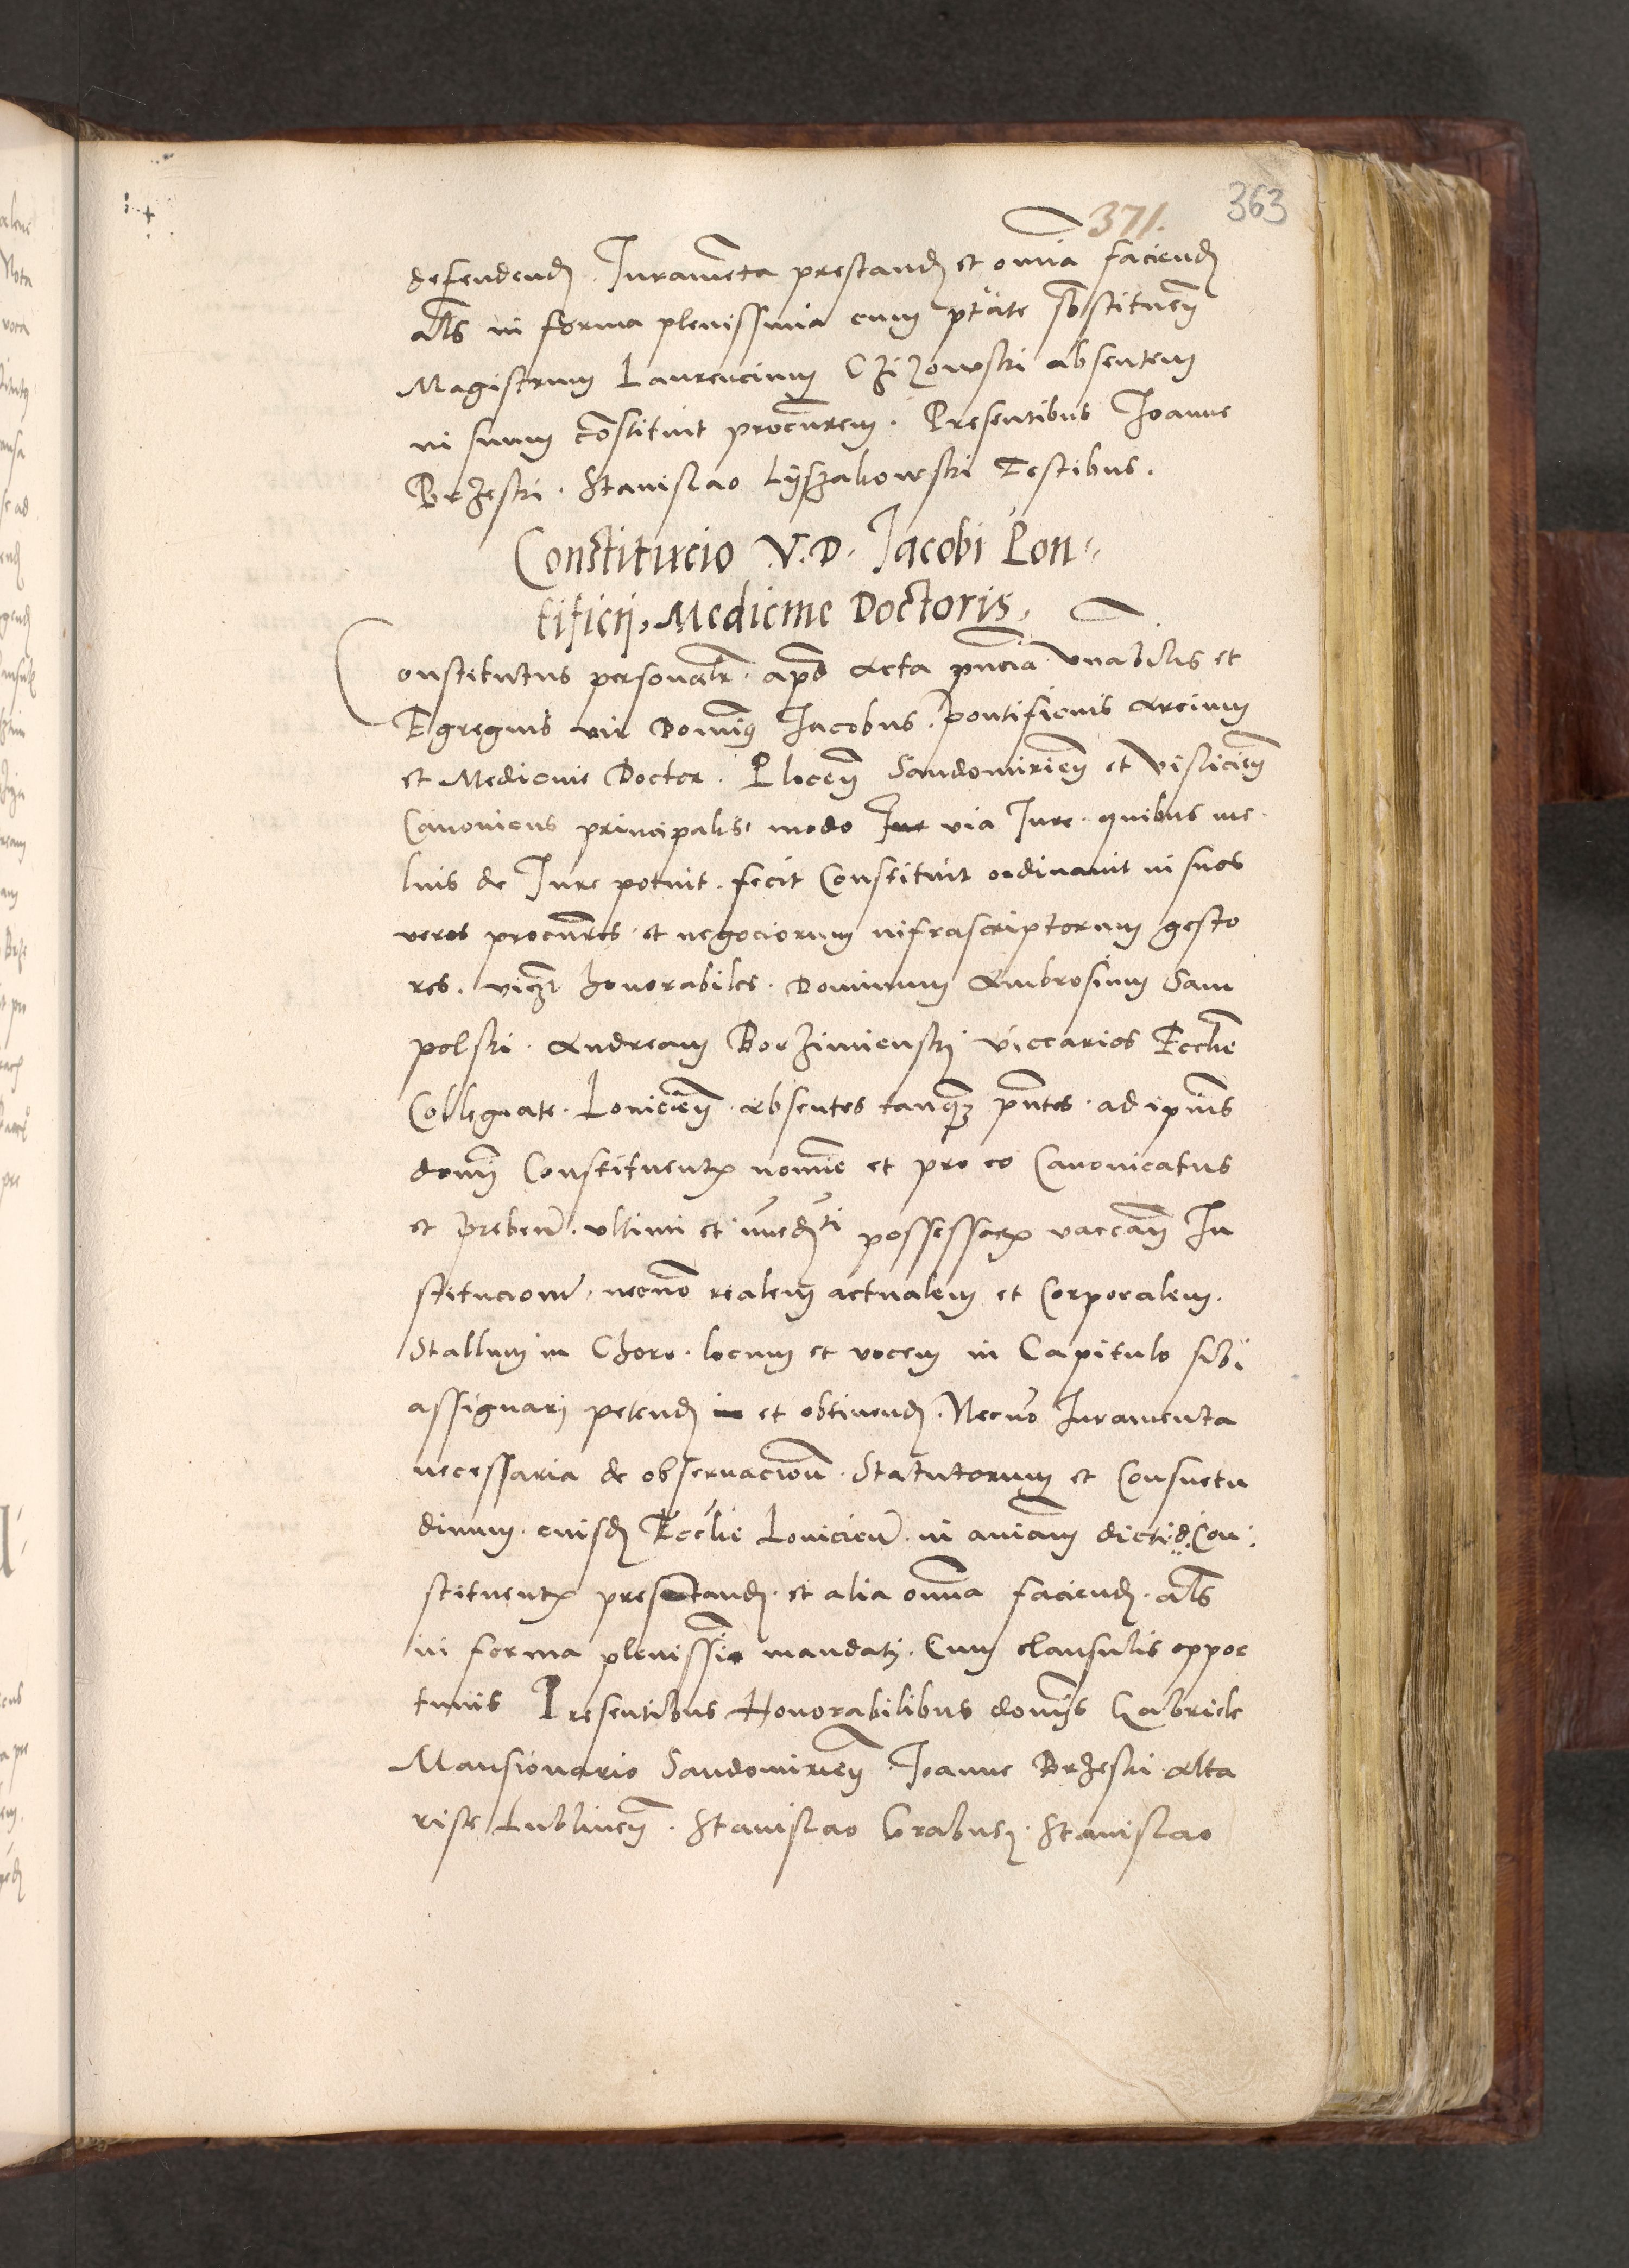 363
371.
defendend Iuramenta prestand et omnia faciend
als in forma plenissima cum ptate substituen
Magistrum Laurencium Czizowski absentem
in suum constituit procuratorem. Presentibus Joanne
Brzeski. Stanislao Lÿszakowski Testibus.
Constitucio V. D. Jacobi Pon-
tificii, Medicine Doctoris.
Constitutus personalr. apud Acta pncia. Vnabilis et
Egregius vir Dominus Jacobus. pontificius Arcium
et Medicine Doctor. Plocen Sandomirien et Vislicien
Canonicus principalis modo Iur via Iure. quibus me-
lius de Iure potuit. fecit Constituit ordinauit in suos
veros procuratores. et negociorum infrascriptorum gesto
res. vicz honorabiles. Dominum Ambrosium Sam
polski. Andream Borzimienski viccarios Eccliae
Collegiate. Lovicien. absentes tanquam pntes. ad ipsius
domini Constituentis nomine et pro eo Canonicatus
et preben. ultimi et immedti possessoris vaccan In
stitucionem. necno realem actualem et Corporalem.
Stallum in Choro. locum et vocem in Capitulo sibi
assignari petend et obtinend. Necno Iuramenta
necessaria de observacion. Statutorum et Consuetu
dinum. eiusd Ecclie Lovicien. in animam dicti d. Con-
stituentis prestand. et alia omnia faciend. als
in forma plenissima mandati. Cum clausulis oppor
tunis Presentibus Honorabilibus dominis Gabriele
Mansionario Sandomirien Joanne Brzeski. alta
rista Lublinen. Stanislao Grabusz. Stanislao